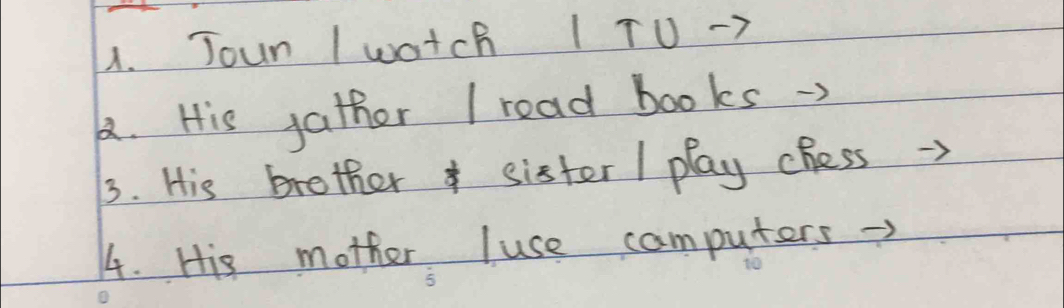 1. Toun / watch / TU →
2. His father / read books →
3. His brother & sister / play chess →
4. His mother / use computers →
0 5 10